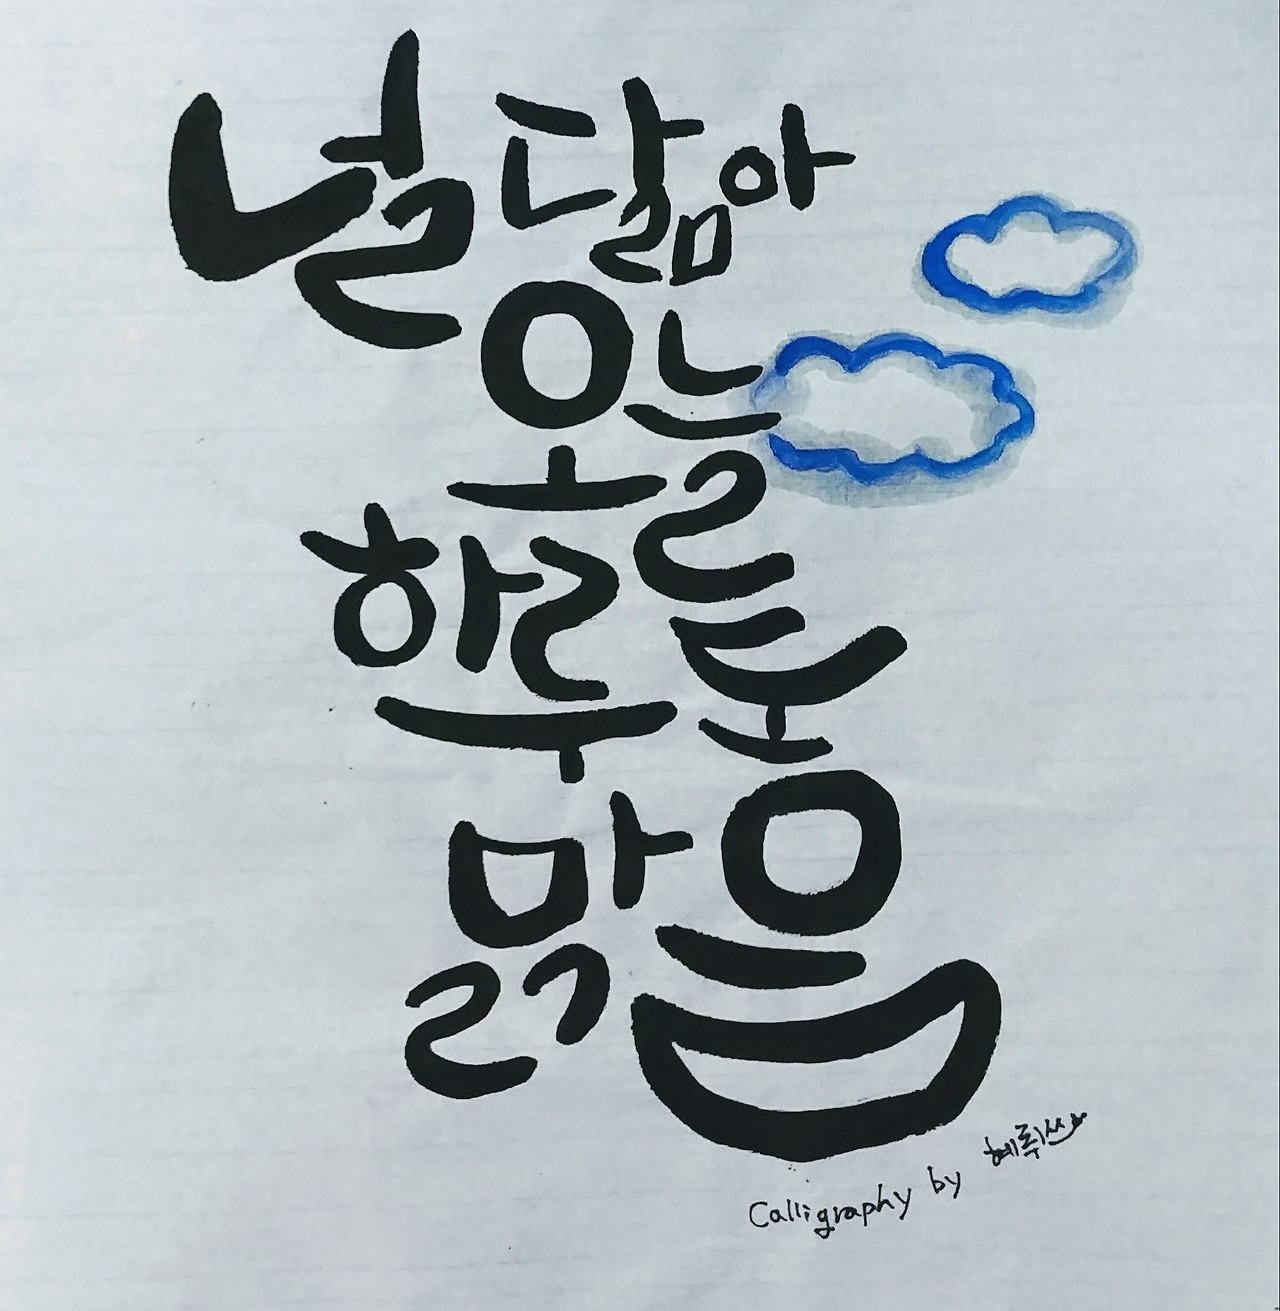 널 닮아
오늘
하루도
맑음
Calligraphy by 혜쮜쓰